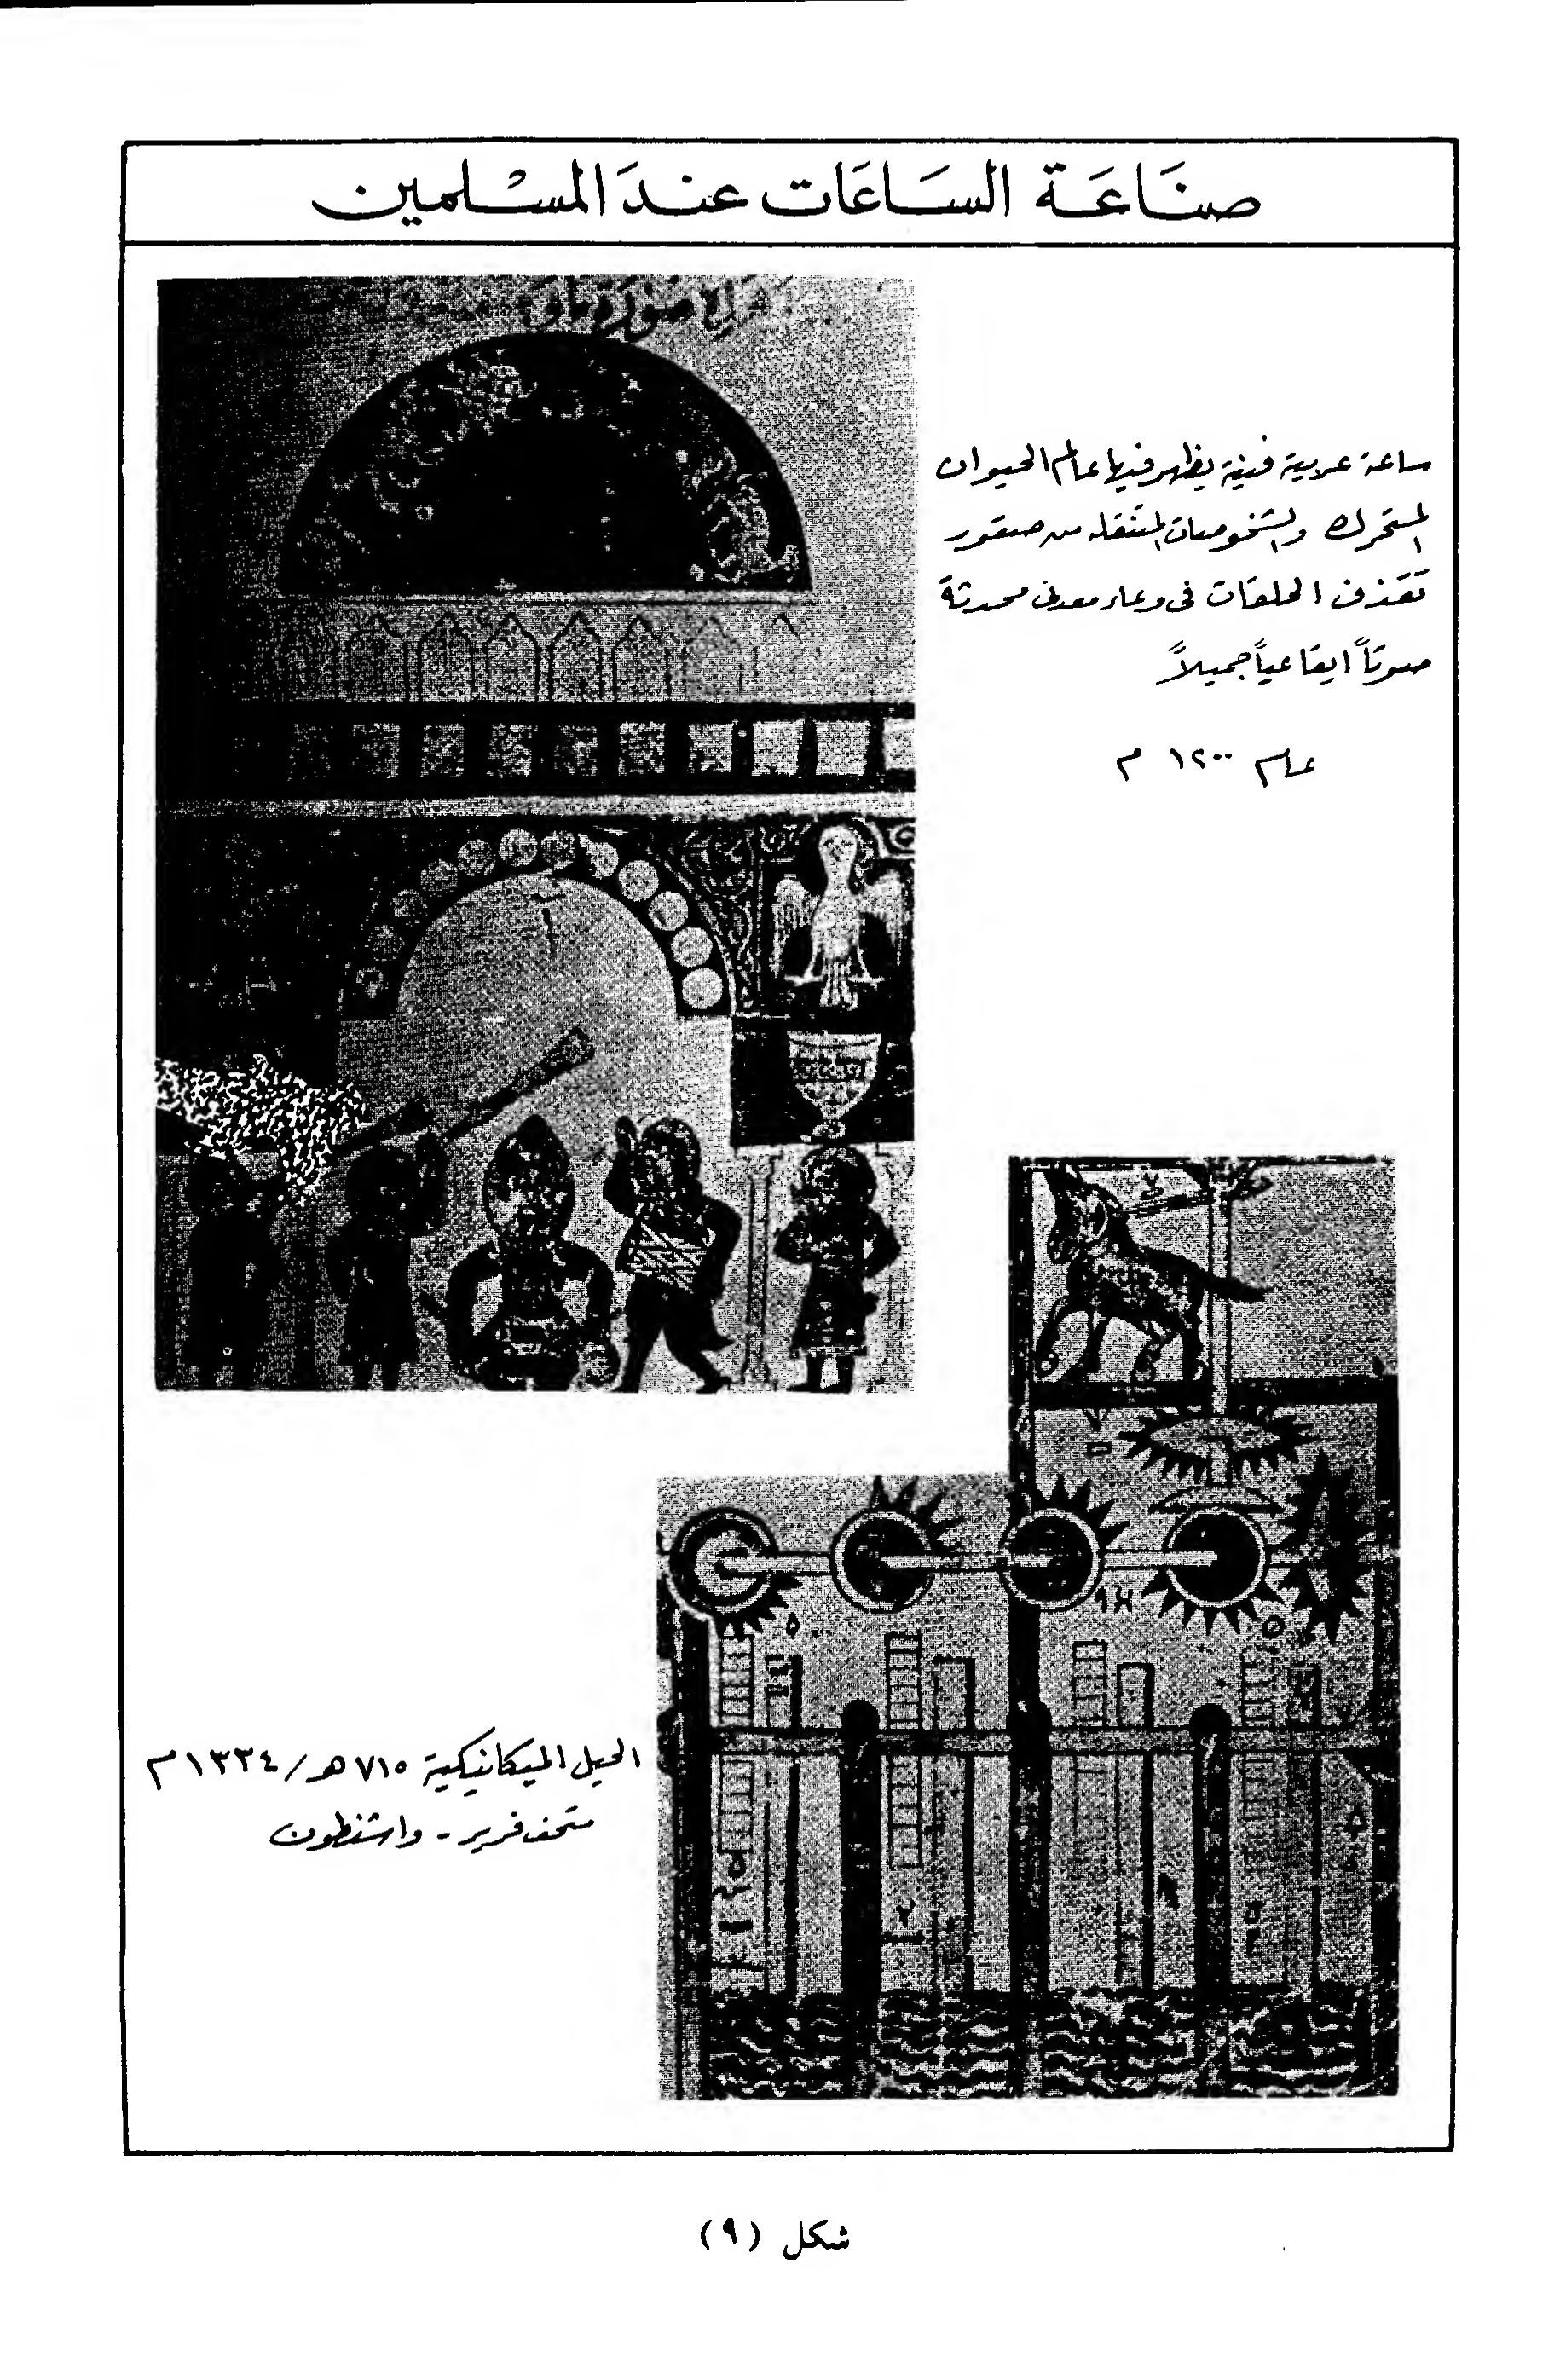 صناعة الساعات عند المسلمين
ساعة عربية فنية يظهر فيها عالم الحيوان
المتحرك والشخوصات المتنقلة من صقور
تقذف الحلقات في وعاء معدني محدثة
صوتاً ايقاعياً جميلاً
عام ١٢٠٠ م
الحيل الميكانيكية ٧١٥ هـ/ ١٣٣٤ م
متحف فرير - واشنطون
شكل (٩)